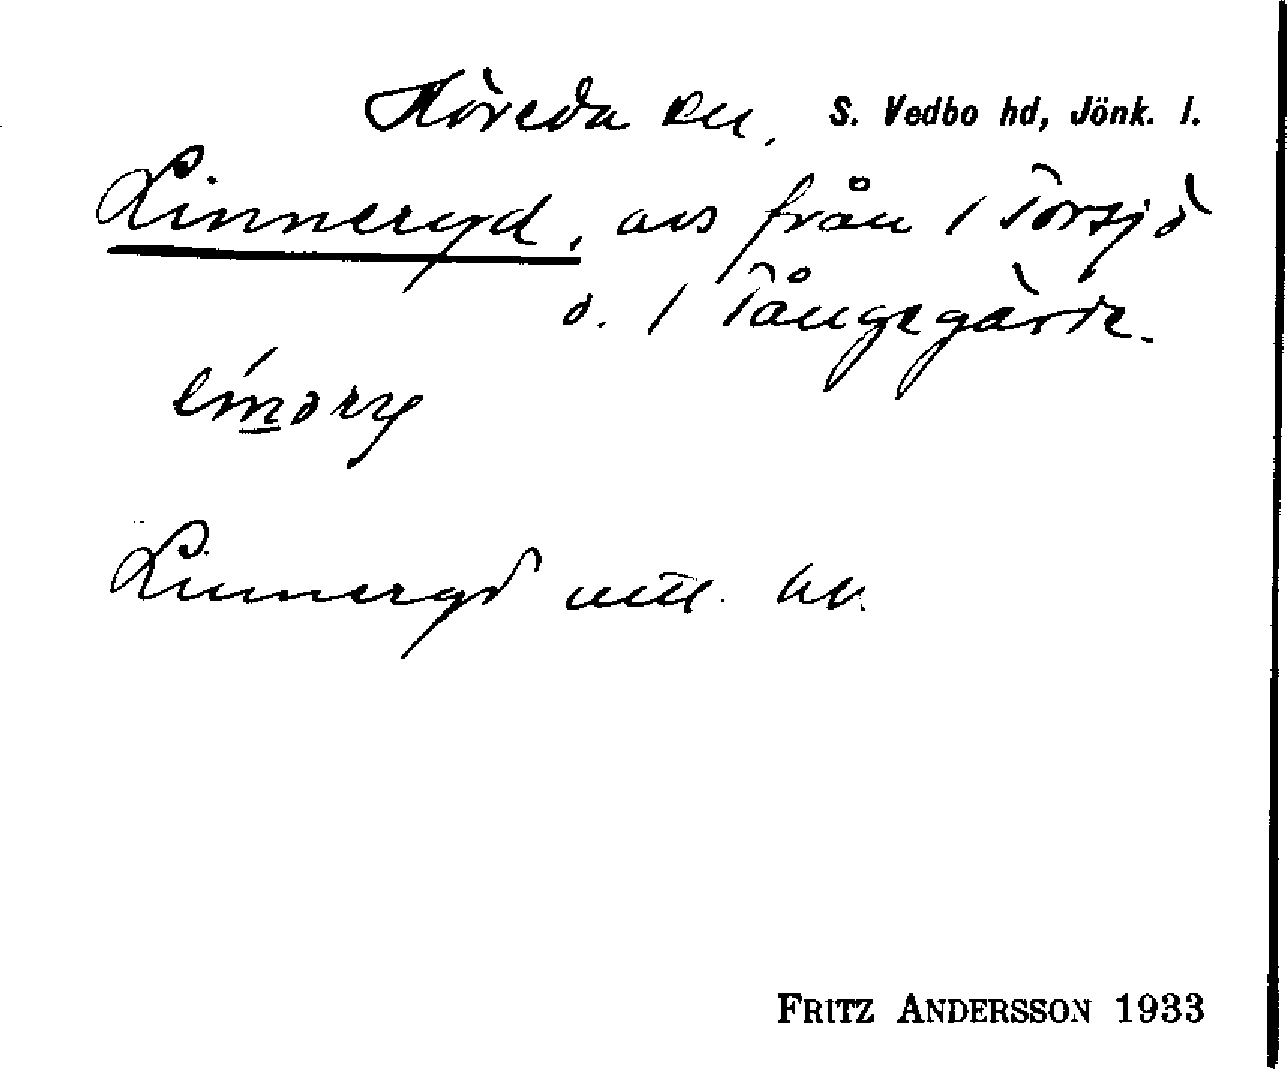 Höreda sn, S. Vedbo hd, Jönk. l.
Linneryd, avs från 1 Torsjö
o. 1 Tångegärde.
Linneryd
FRITZ ANDERSSON 1933